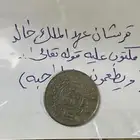 قرشان عهد الملك خالد
مكتوب عليه قوله تعالى
(ويطعمون على حبه)